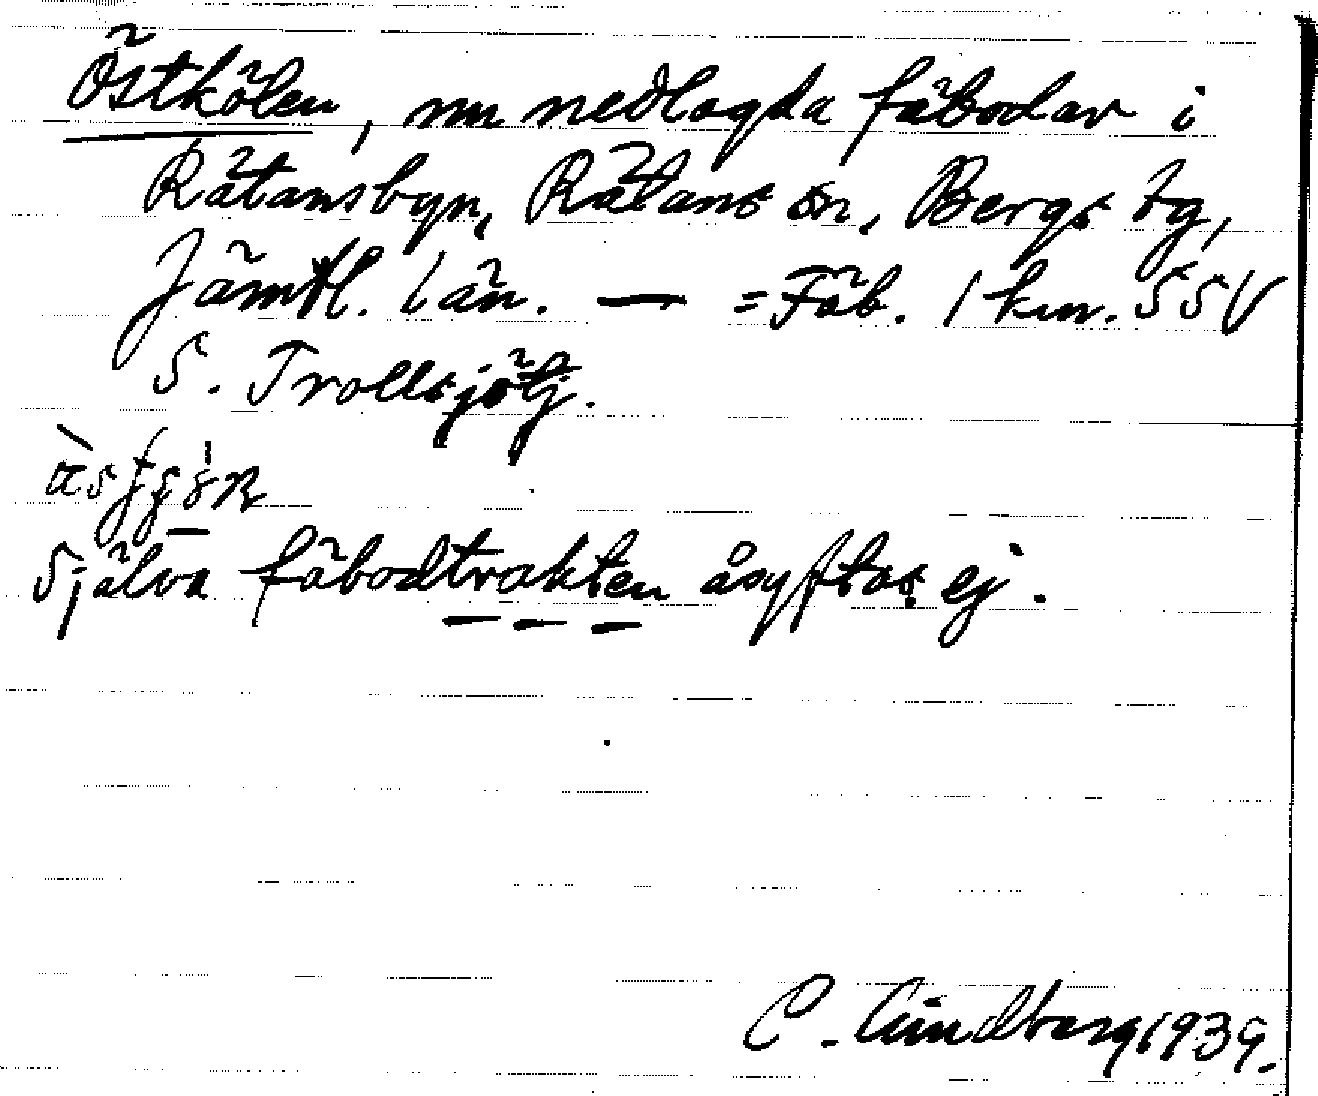 Östkölen, nu nedlagda fäbodar i
Rätansbyn, Rätans sn, Bergs tg,
Jämtl. län. — = Fäb. 1 km. SSV
S. Trollsjötj.
Själva fäbodtrakten åsyftas ej.
C. Lindberg 1939.